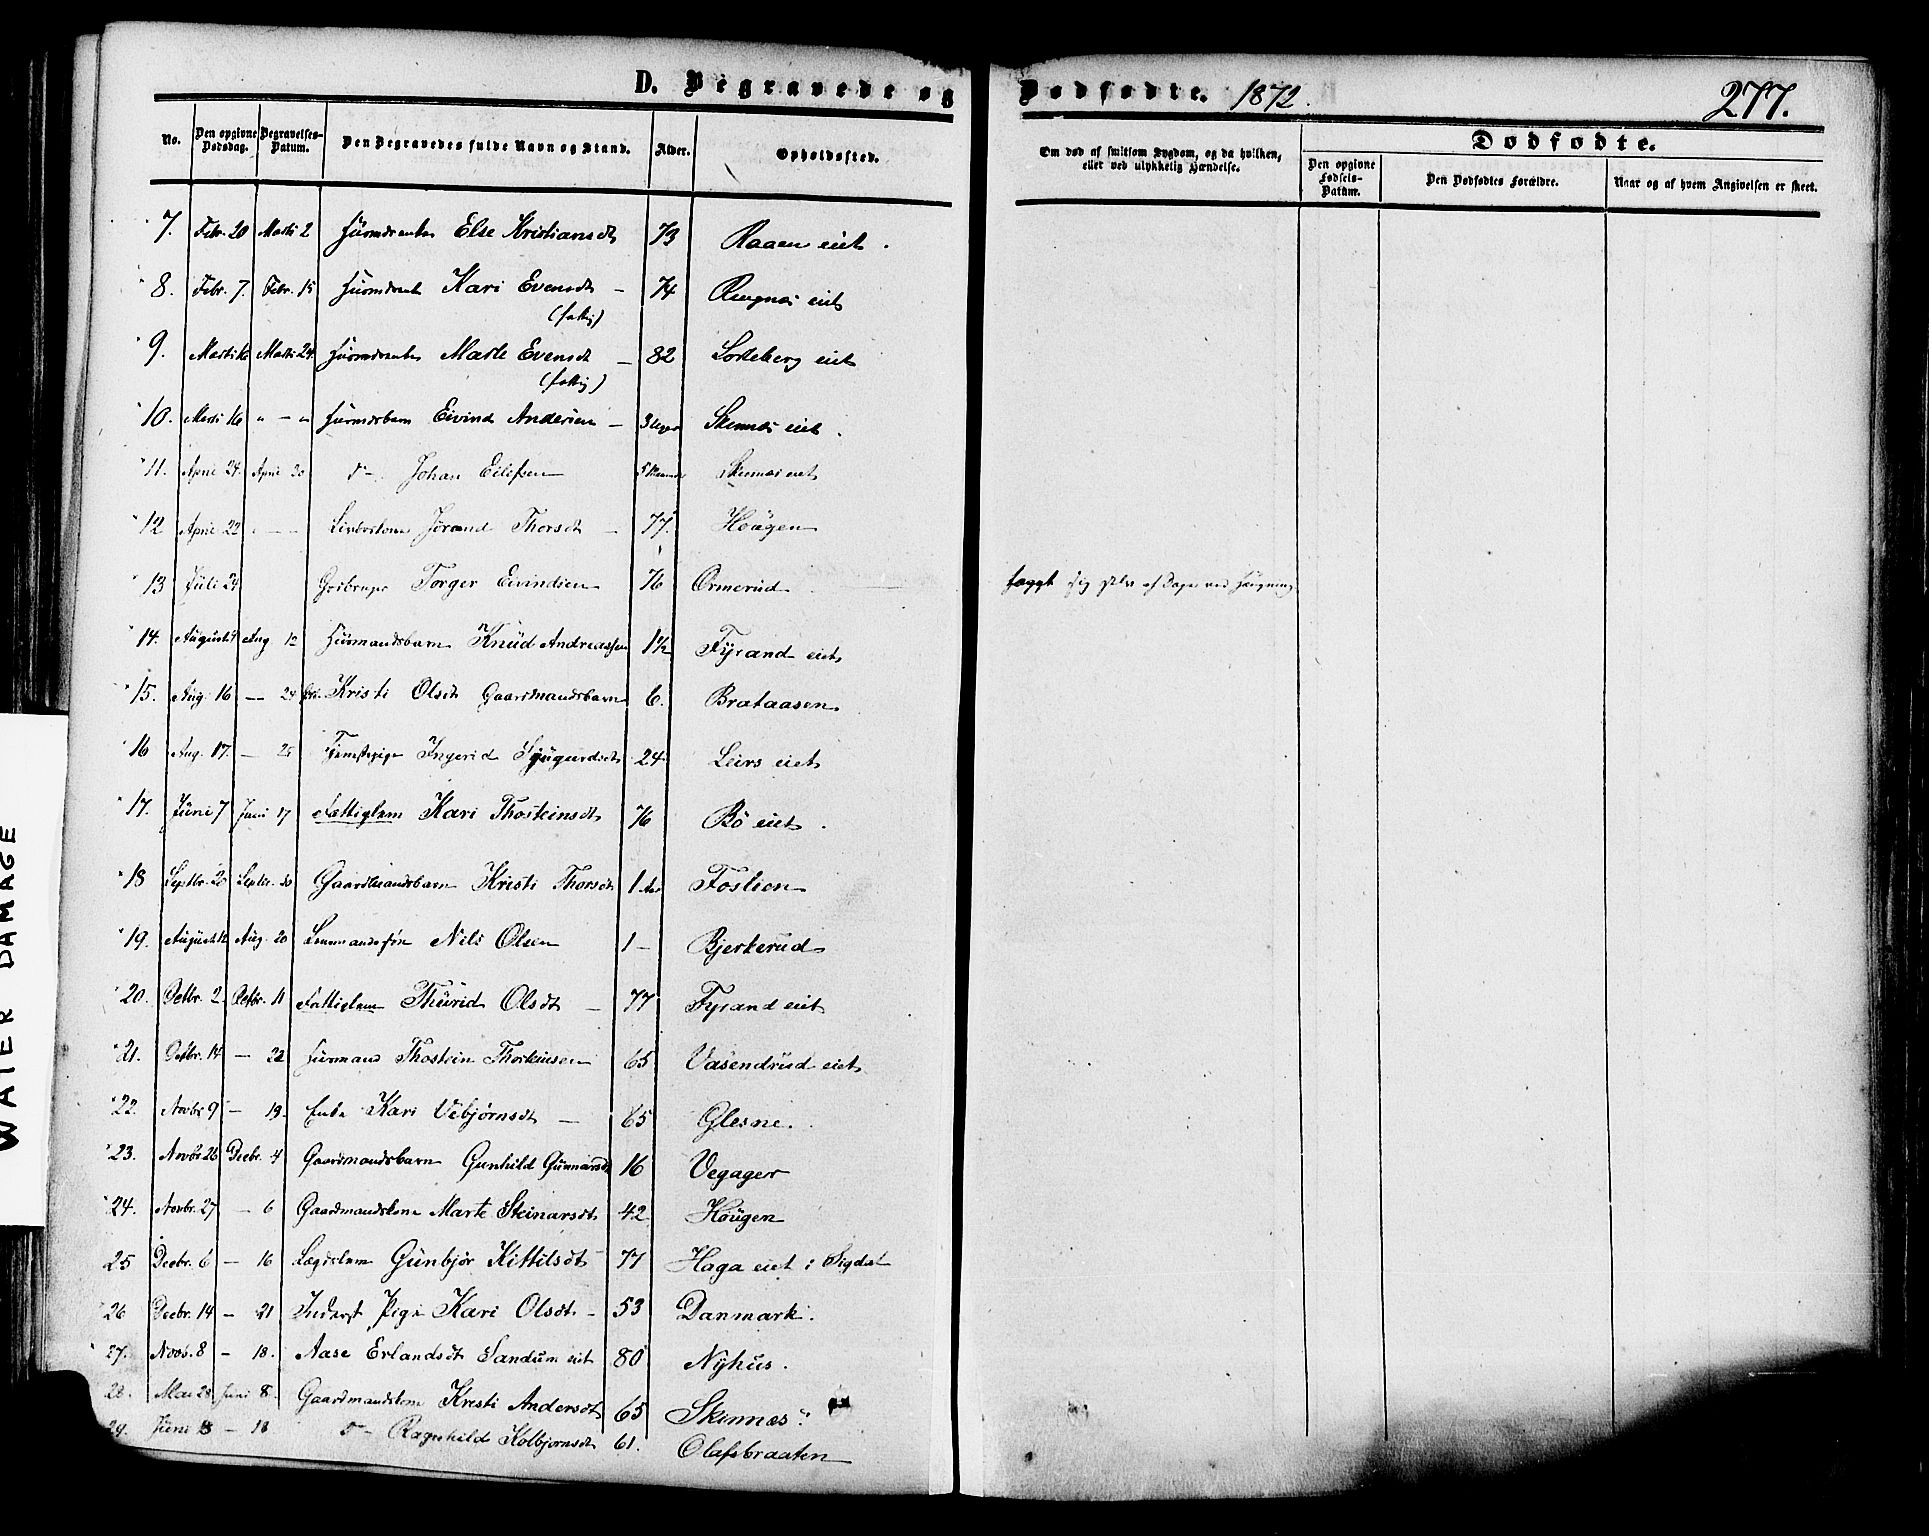 D. Begravede og Dødfødte. 1872. 277.
No. Den opgivne Dødsdag. Begravelses-Datum. Den Begravedes fulde Navn og Stand. Alder. Opholdssted. Om død af smitsom Sygdom, og da hvilken, eller ved ulykkelig Hændelse. Dødfødte. Den opgivne Fødsels-Datum. Den Dødfødtes Forældre. Naar og af hvem Angivelsen er skeet.
7. Febr. 20 Marts 2 Huusmdsenke Else Kristiansdt 73 Raaen eiet.
8. Febr. 7. Febr. 15 Huusmdsenke Kari Evensdt – 74 Ringnæs eiet
(fattig)
9. Marts Marts 24 Huusmdsenke Marte Evensdt – 82 Sorteberg eiet
(fattig)
10. Marts 16 " – " Huusmdsbarn Eivind Andersen – 3 Uger Skinnæs eiet.
11. April 24. April 30 do – Johan Eilifsen 5 Skinnæs eiet
12 April 22 " – – Jørand Thorsdt – 77. Hougen
13 Juli 24 Torger Eivindsen 76 Ormerud. sig selv af Dage ved Hængning
14. August Aug 12 Huusmandsbarn Knud Andreassen 1½ Fyrand eiet
15. Aug. 16 – 24 Kristi Olsdt Gaardmandsbarn 6. Brataasen.
16 Aug. 17. – 25 Tjenestepige Ingerid Sjugurdsdt 24 Leirs eiet
17. Juni 7 Juni 17 Fattiglem Kari Thosteinsdt 76 Bö eiet.
18 Septbr. 20 Septbr. 30 Gaardmandsbarn Kristi Thorsdt 1 Aar Foslien
19. August 12 Aug. 20 Lensmandssøn Nils Olsen 1 – Bjerkerud
20. Octbr. 2. Octbr. 11 Fattiglem Thurid Olsdt – 77 Fyrand eiet
21. Octbr. 14 – 22 Huusmand Thostein Thorkinsen 65 Vasendrud eiet
22. Novbr 9 – 19. Enke Kari Vebjørnsdt – 65 Glesne.
23. Novbr. 26 Decbr. 4 Gaardmandsbarn Gunhild Gunnarsdt 16 Vegager
24. Novbr. 27 – 6 Gaardmandskone Marte Steinarsdt 42 Hougen
25 Decbr. 6 – 16 Lægdslem Gunbjør Kittilsdt 77 Haga eiet i Sigdal
26 Decbr. 14 – 21 Inderst Pige Kari Olsdt – 53 Danmark.
27. Novb. 8 – 18. Aase Erlandsdt Sandum eiet 80 Nyhus.
28. Mai 28 Juni 8. Gaardmandskone Kristi Andersdt 65 Skinnæs.
29. Juni 8 – 18 do – Ragnhild Kolbjørnsdt 61. Olafsbraaten
WATER DAMAGE